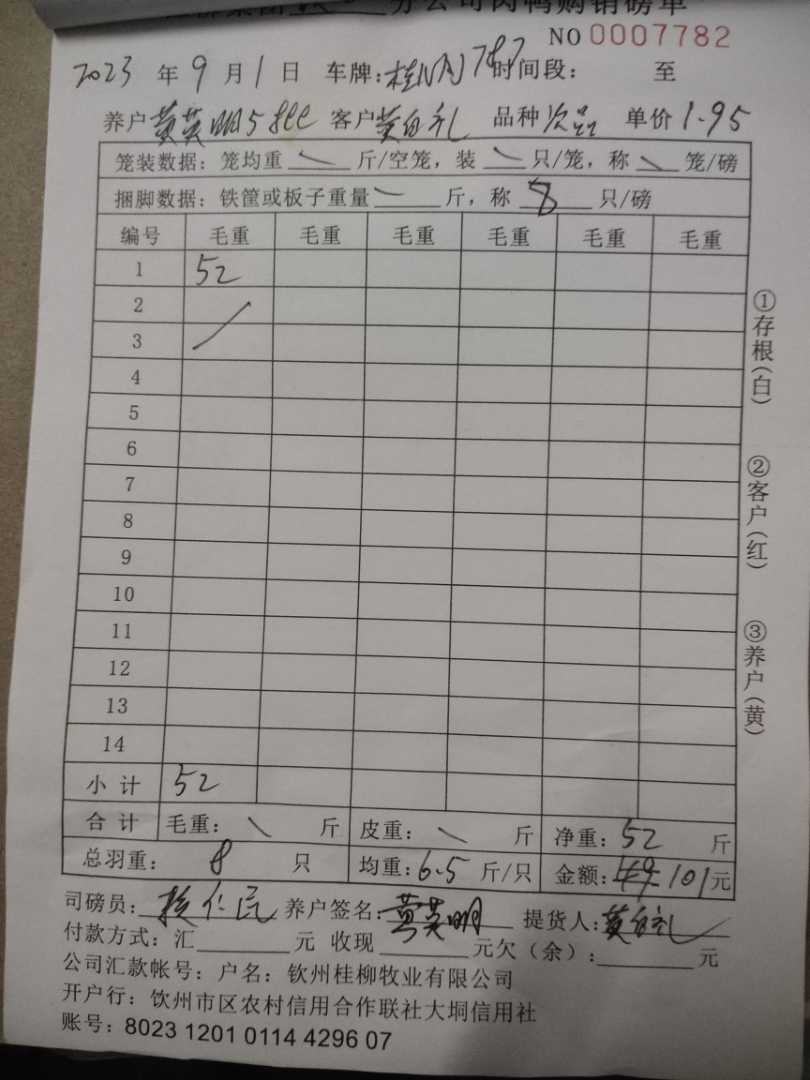 分公司肉鸭购销磅单
NO 0007782
2023 年 9 月 1 日 车牌: 时间段: 至
养户 黄英明 客户 黄白礼 品种 次品 单价 1.95
笼装数据: 笼均重 斤/空笼, 装 只/笼, 称 笼/磅
捆脚数据: 铁筐或板子重量 斤, 称 8 只/磅
编号 毛重 毛重 毛重 毛重 毛重 毛重
1 52
2
3
4
5
6
7
8
9
10
11
12
13
14
小计 52
合计 毛重: 斤 皮重: 斤 净重: 52 斤
总羽重: 8 只 均重: 6.5 斤/只 金额: 101 元
司磅员: 养户签名: 黄英明 提货人: 黄白礼
付款方式: 汇 元 收现 元欠(余): 元
公司汇款帐号: 户名: 钦州桂柳牧业有限公司
开户行: 钦州市区农村信用合作联社大垌信用社
账号: 8023 1201 0114 4296 07
①存根(白)
②客户(红)
③养户(黄)